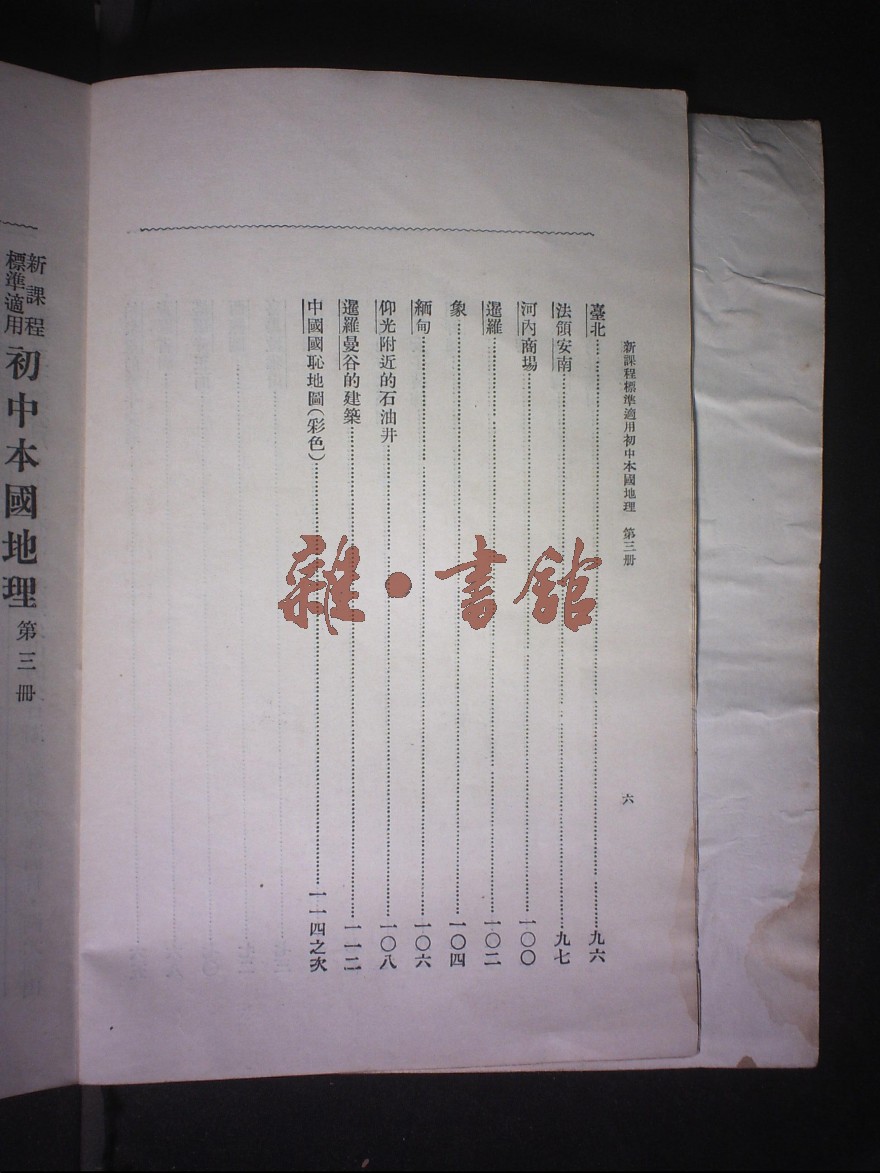 新課程標準適用初中本國地理　第三册
六
臺北⋯⋯九六
法領安南⋯⋯九七
河內商場⋯⋯一〇〇
暹羅⋯⋯一〇二
象⋯⋯一〇四
緬甸⋯⋯一〇六
仰光附近的石油井⋯⋯一〇八
暹羅曼谷的建築⋯⋯一一二
中國國恥地圖(彩色)⋯⋯一一四之次
雜·書館
新課程
標準適用
初中本國地理
第三冊